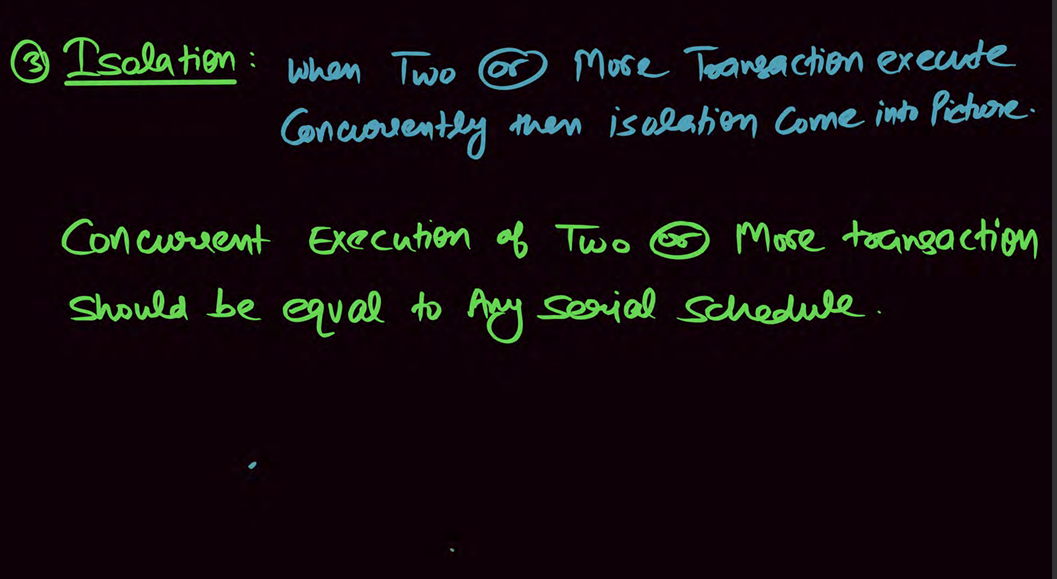 ③ Isolation: When Two or More Transaction execute
Concurrently then isolation Come into Picture.
Concurrent Execution of Two or More transaction
should be equal to Any serial schedule.